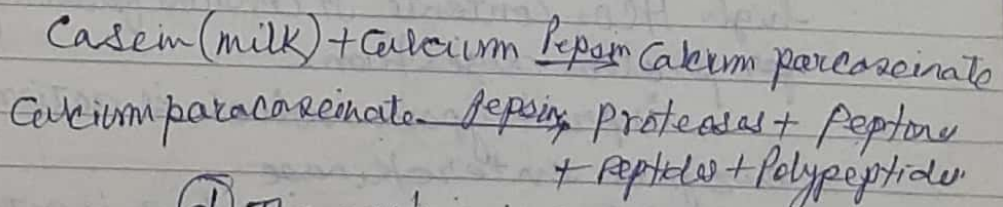 Casein (milk) + Calcium Pepsin Calcium parcaseinate
Calcium paracaseinate Pepsin Proteases + Peptone
+ Peptides + Polypeptides